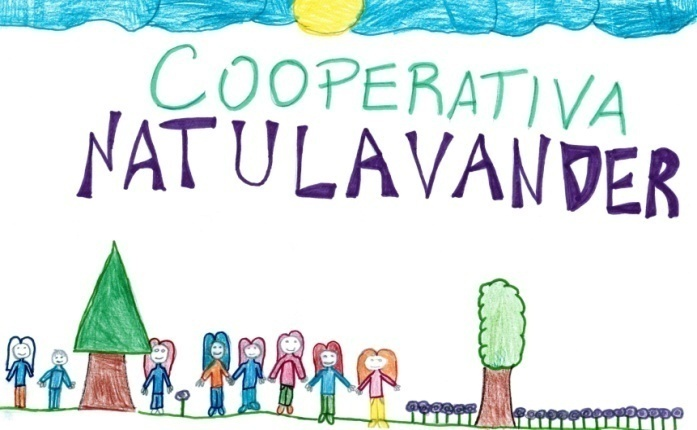 COOPERATIVA
NATULAVANDER